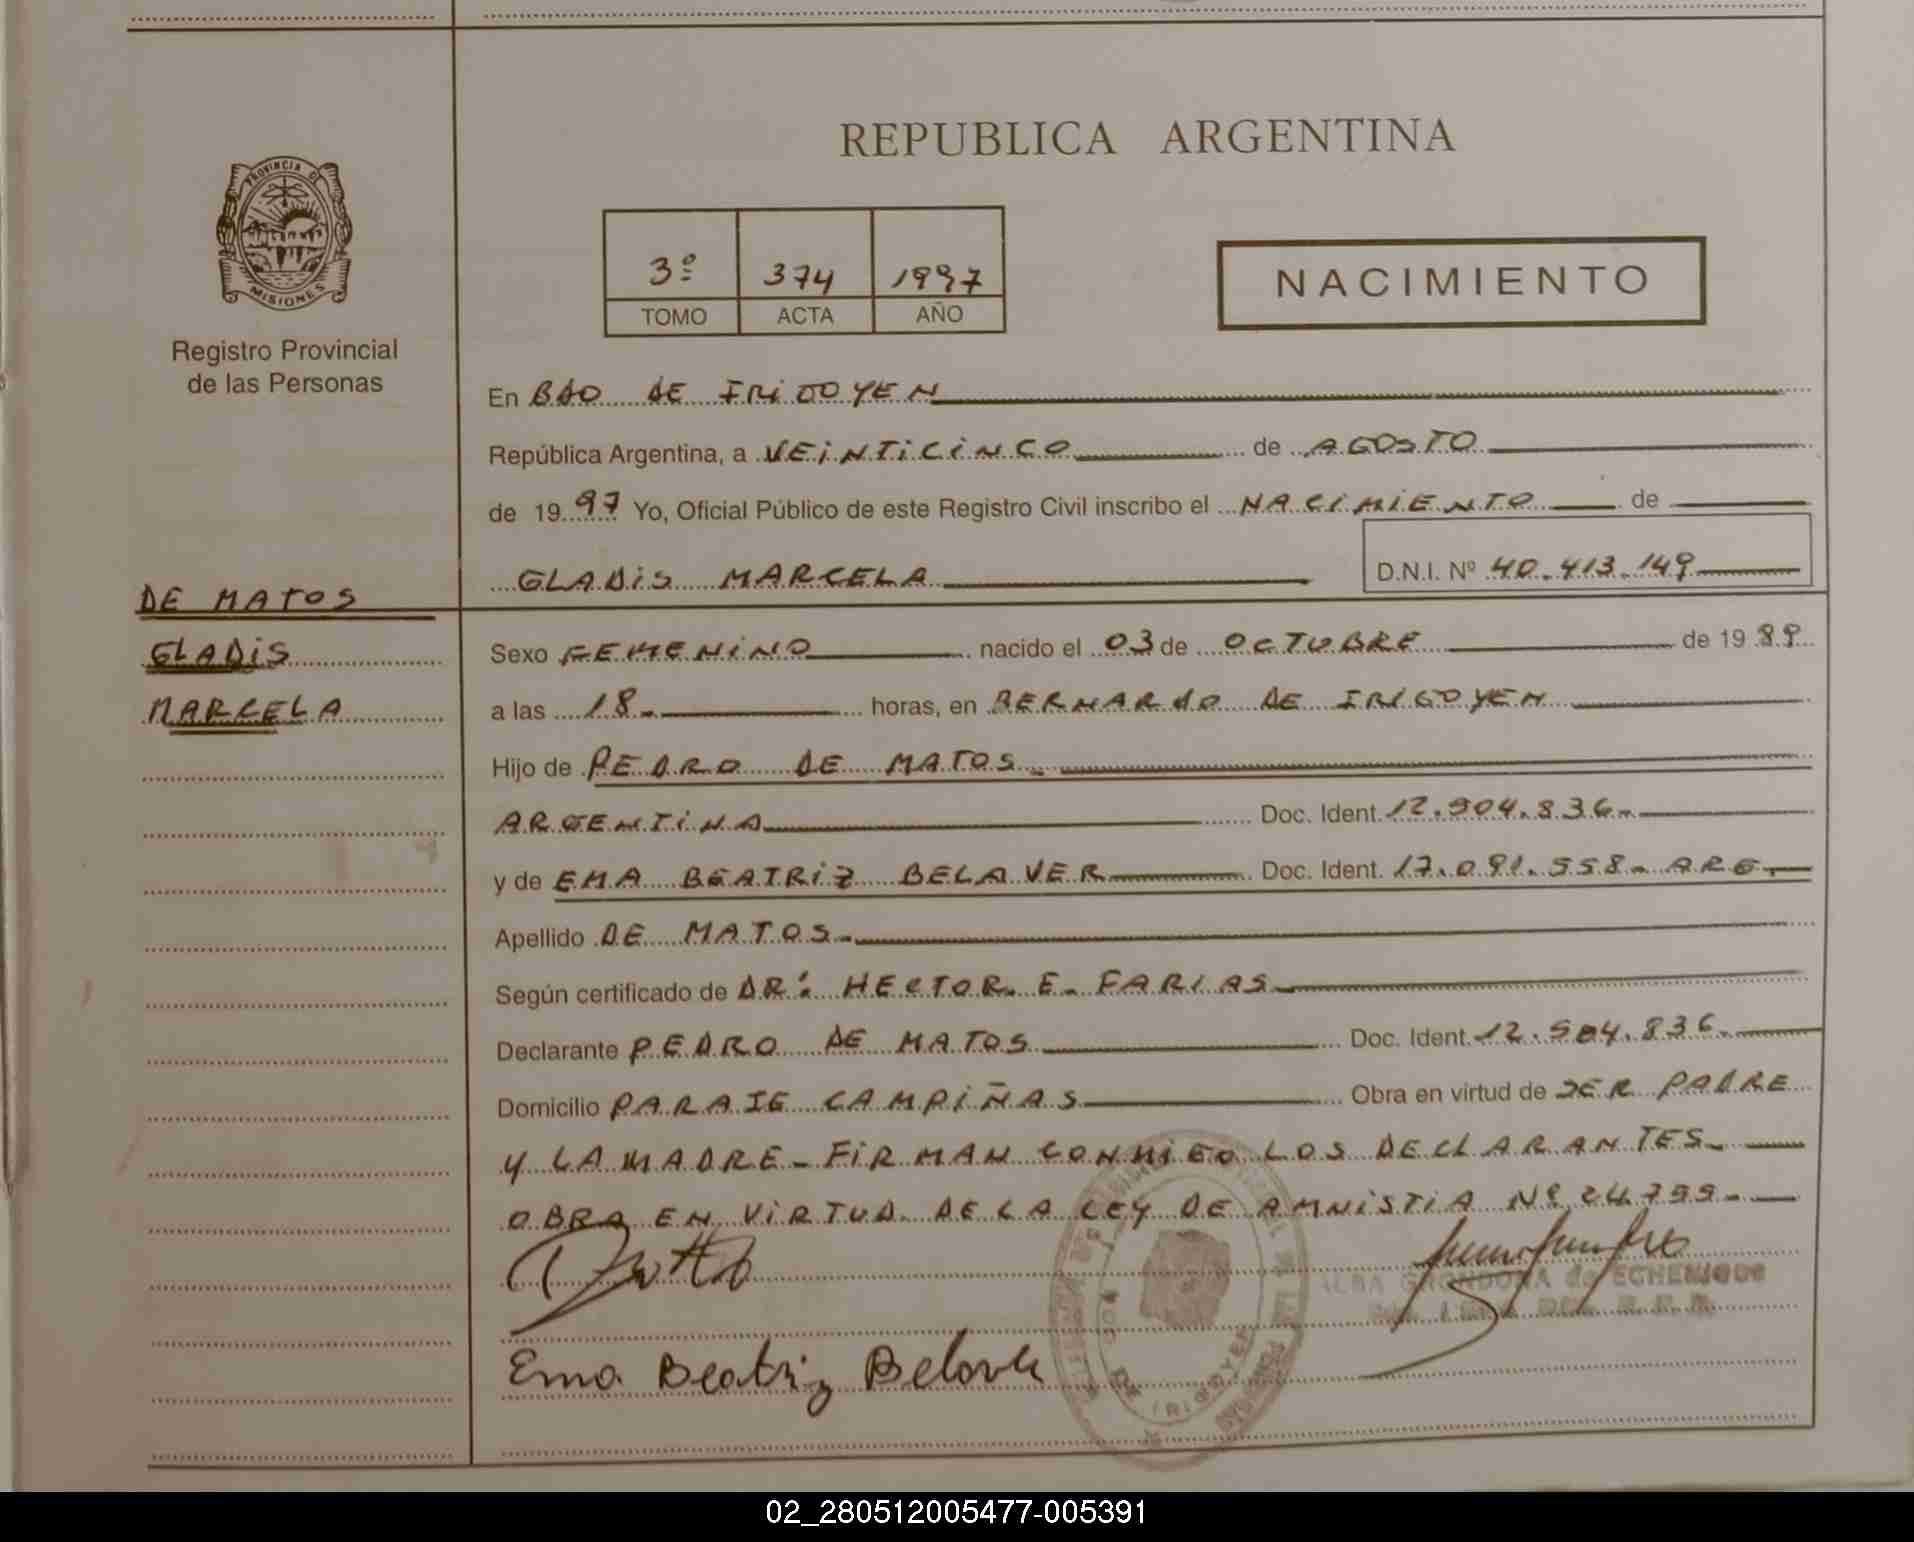 REPUBLICA ARGENTINA
PROVINCIA DE
MISIONES
Registro Provincial
de las Personas
3º 374 1997
TOMO ACTA AÑO
NACIMIENTO
En BDO DE IRIGOYEN
República Argentina, a VEINTICINCO de AGOSTO
de 1997 Yo, Oficial Público de este Registro Civil inscribo el NACIMIENTO de
GLADIS MARCELA D.N.I. Nº 40.413.149
DE MATOS
GLADIS
MARCELA
Sexo FEMENINO nacido el 03 de OCTUBRE de 1989
a las 18. horas, en BERNARDO DE IRIGOYEN
Hijo de PEDRO DE MATOS.
ARGENTINA Doc. Ident. 12.504.836.
y de EMA BEATRIZ BELAVER Doc. Ident. 17.091.558. ARG.
Apellido DE MATOS.
Según certificado de DR: HECTOR. E. FARIAS
Declarante PEDRO DE MATOS Doc. Ident. 12.504.836.
Domicilio PARAJE CAMPIÑAS Obra en virtud de SER PADRE
Y LA MADRE - FIRMAN CONMIGO LOS DECLARANTES.
OBRA EN VIRTUD. DE LA LEY DE AMNISTIA Nº 24.755.
ALBA GRONDONA de ECHENIQUE
Ema Beatriz Belaver
DE IRIGOYEN
02_280512005477-005391